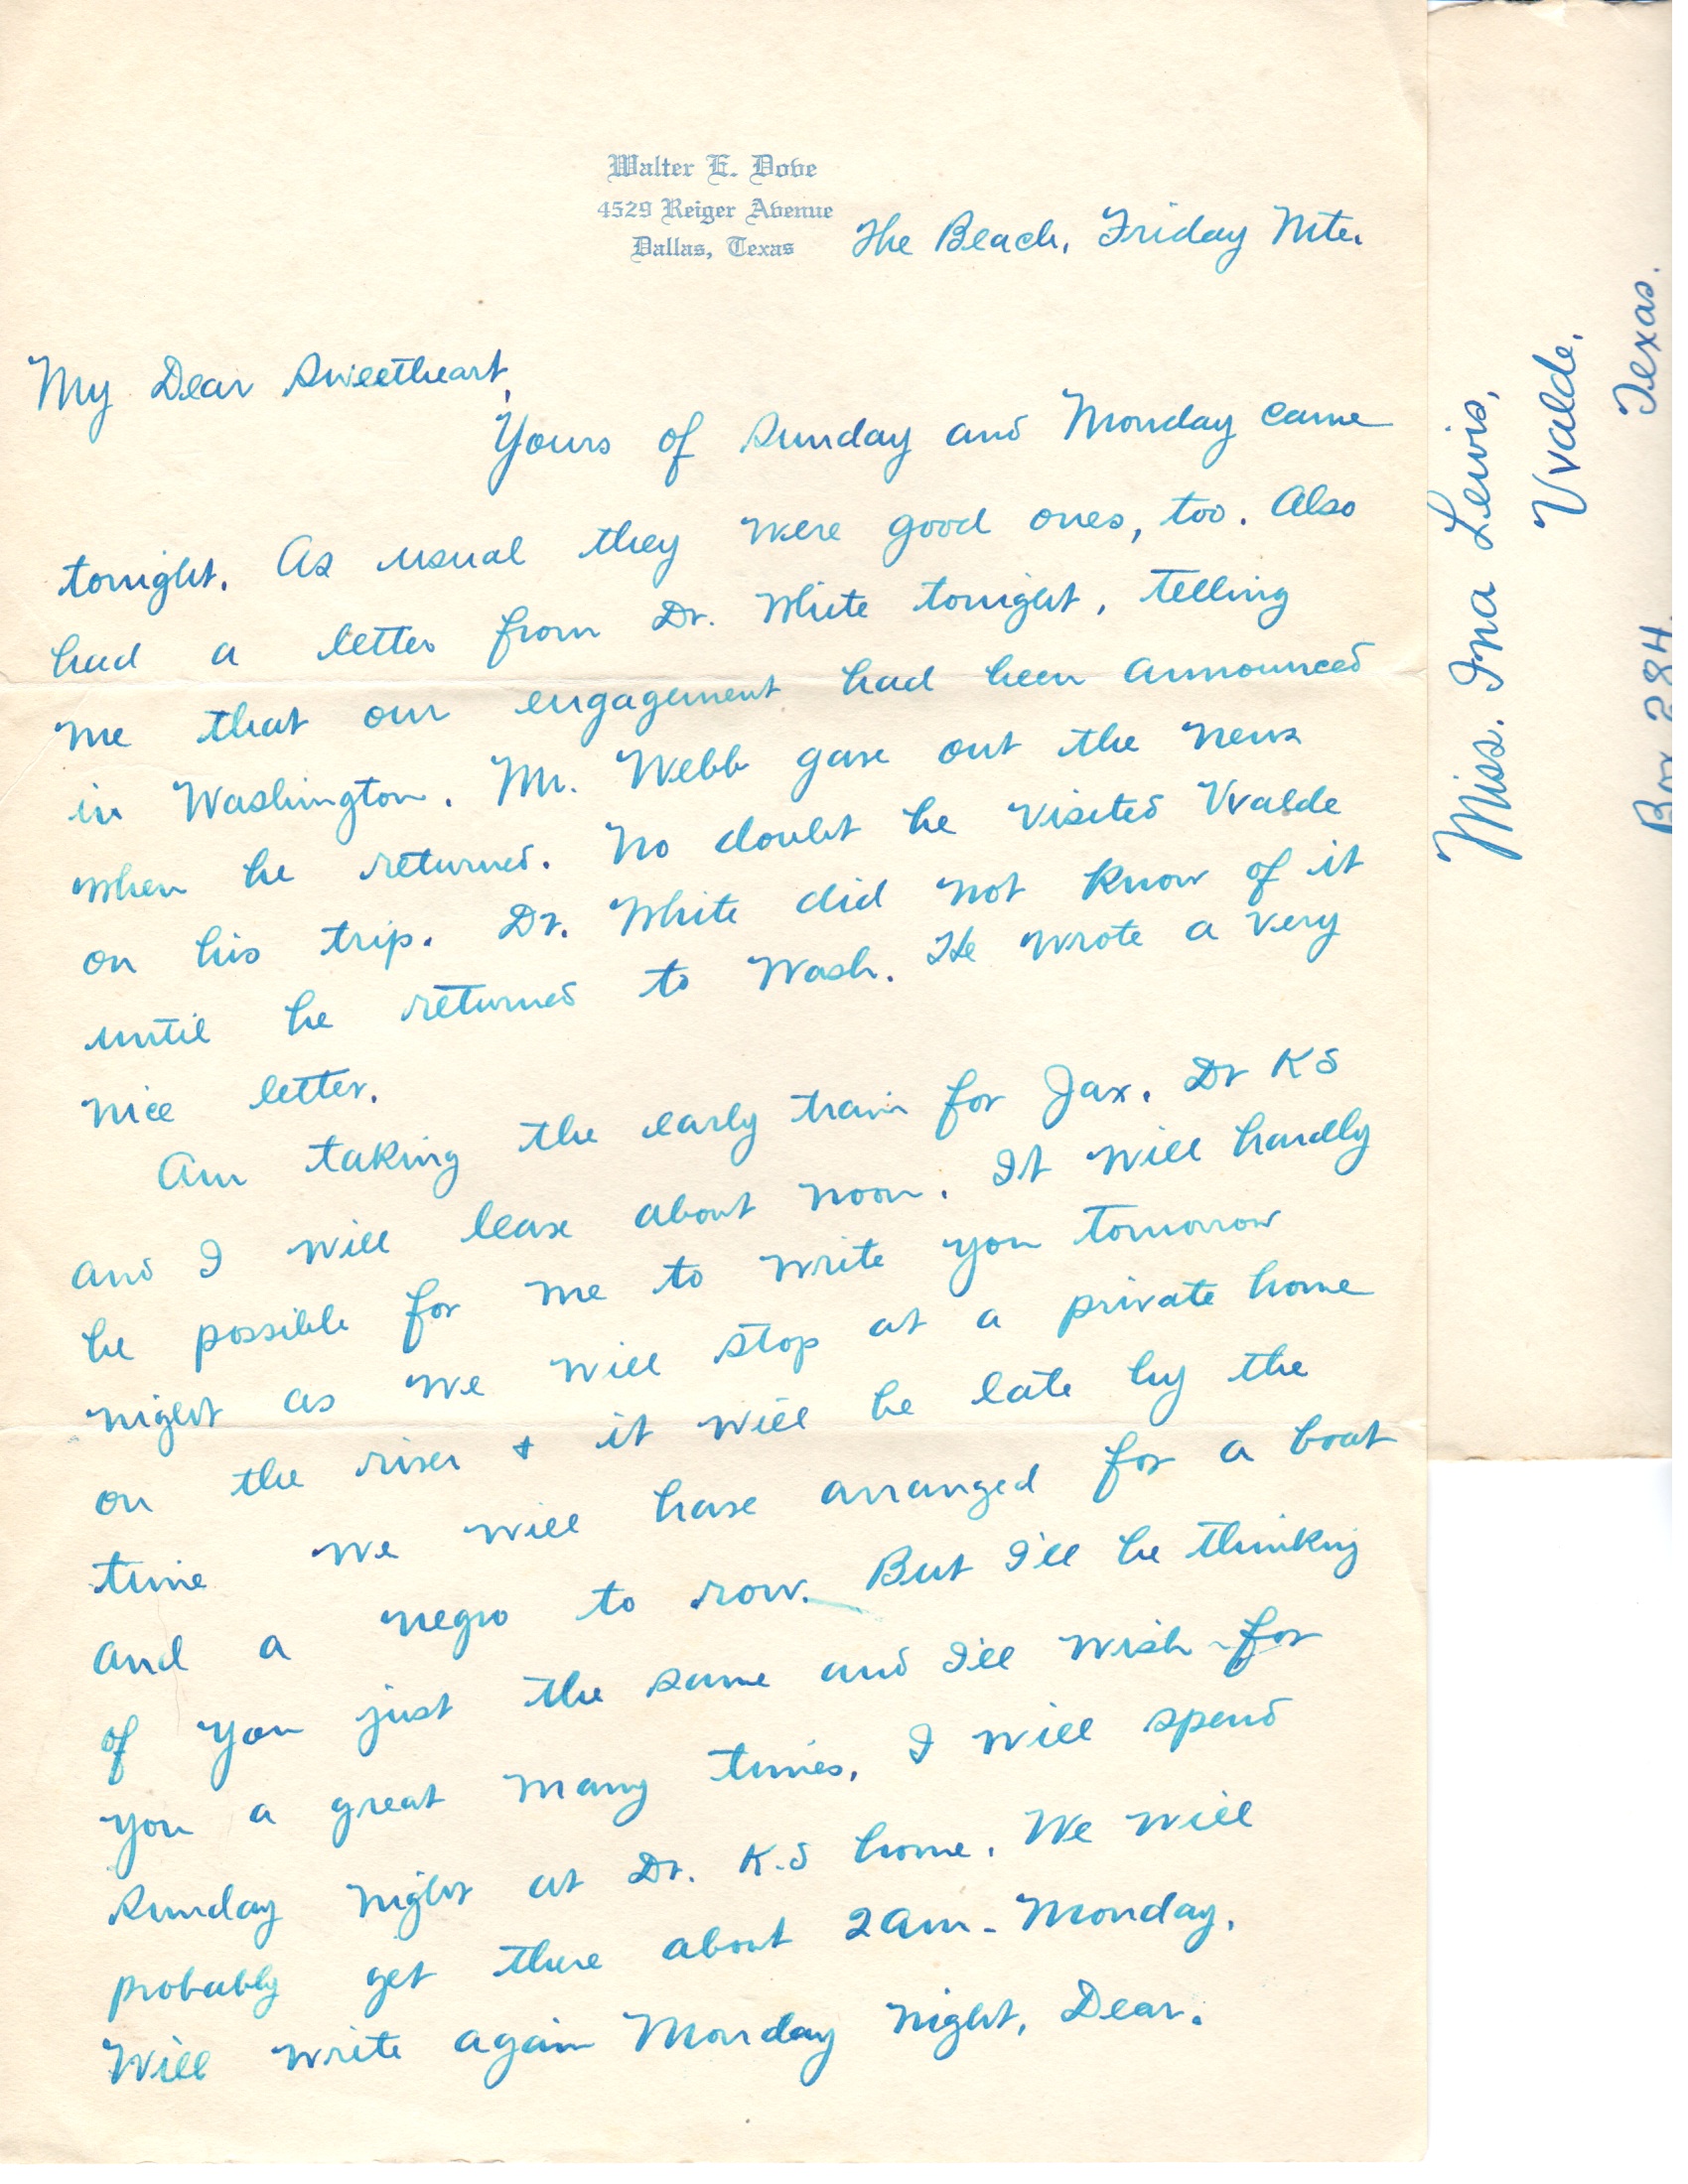 Walter E. Dove
4529 Reiger Avenue
Dallas, Texas
The Beach, Friday Nite.
My Dear Sweetheart,
Yours of Sunday and Monday came
tonight. As usual they were good ones, too. Also
had a letter from Dr. White tonight, telling
me that our engagement had been announced
in Washington. Mr. Webb gave out the news
when he returned. No doubt he visited Uvalde
on his trip. Dr. White did not know of it
until he returned to Wash. He wrote a very
nice letter.
Am taking the early train for Jax. Dr KS
and I will leave about noon. It will hardly
be possible for me to write you tomorrow
night as we will stop at a private home
on the river & it will be late by the
time we will have arranged for a boat
and a negro to row. But I'll be thinking
of you just the same and I'll wish for
you a great many times. I will spend
Sunday night at Dr. K.S home. We will
probably get there about 2am - Monday.
Will write again Monday night, Dear.
Miss. Ina Lewis,
Uvalde,
Texas.
Box 284.